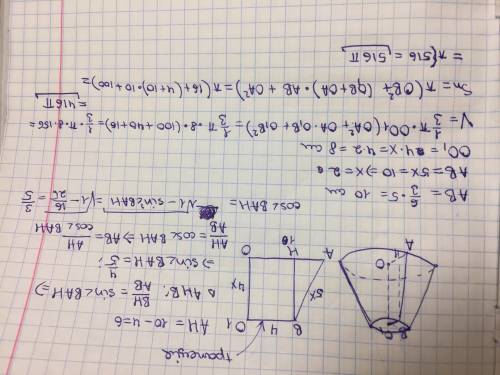 трапеція
O1 4 B
4x 5x
O H 10 A
B
O
4
A
AH = 10-4=6
△AHB: BH/AB = sin∠BAH ⇒
⇒ sin∠BAH = 4/5;
AH/AB = cos∠BAH ⇒ AB = AH/cos∠BAH
cos∠BAH = √1-sin²∠BAH = √1-16/25 = 3/5
AB = 6/3 · 5 = 10 см
AB = 5x = 10 ⇒ x = 2
OO1 = 4x = 4·2 = 8 см
V = 1/3 π·OO1(OA²+OA·O1B+O1B²) = 1/3 π·8·(100+40+16) = 1/3·π·8·156 =
= 416π
Sп = π(OB²+(OB+OA)·AB+OA²) = π(16+(4+10)·10+100) =
= π(516 = 516π